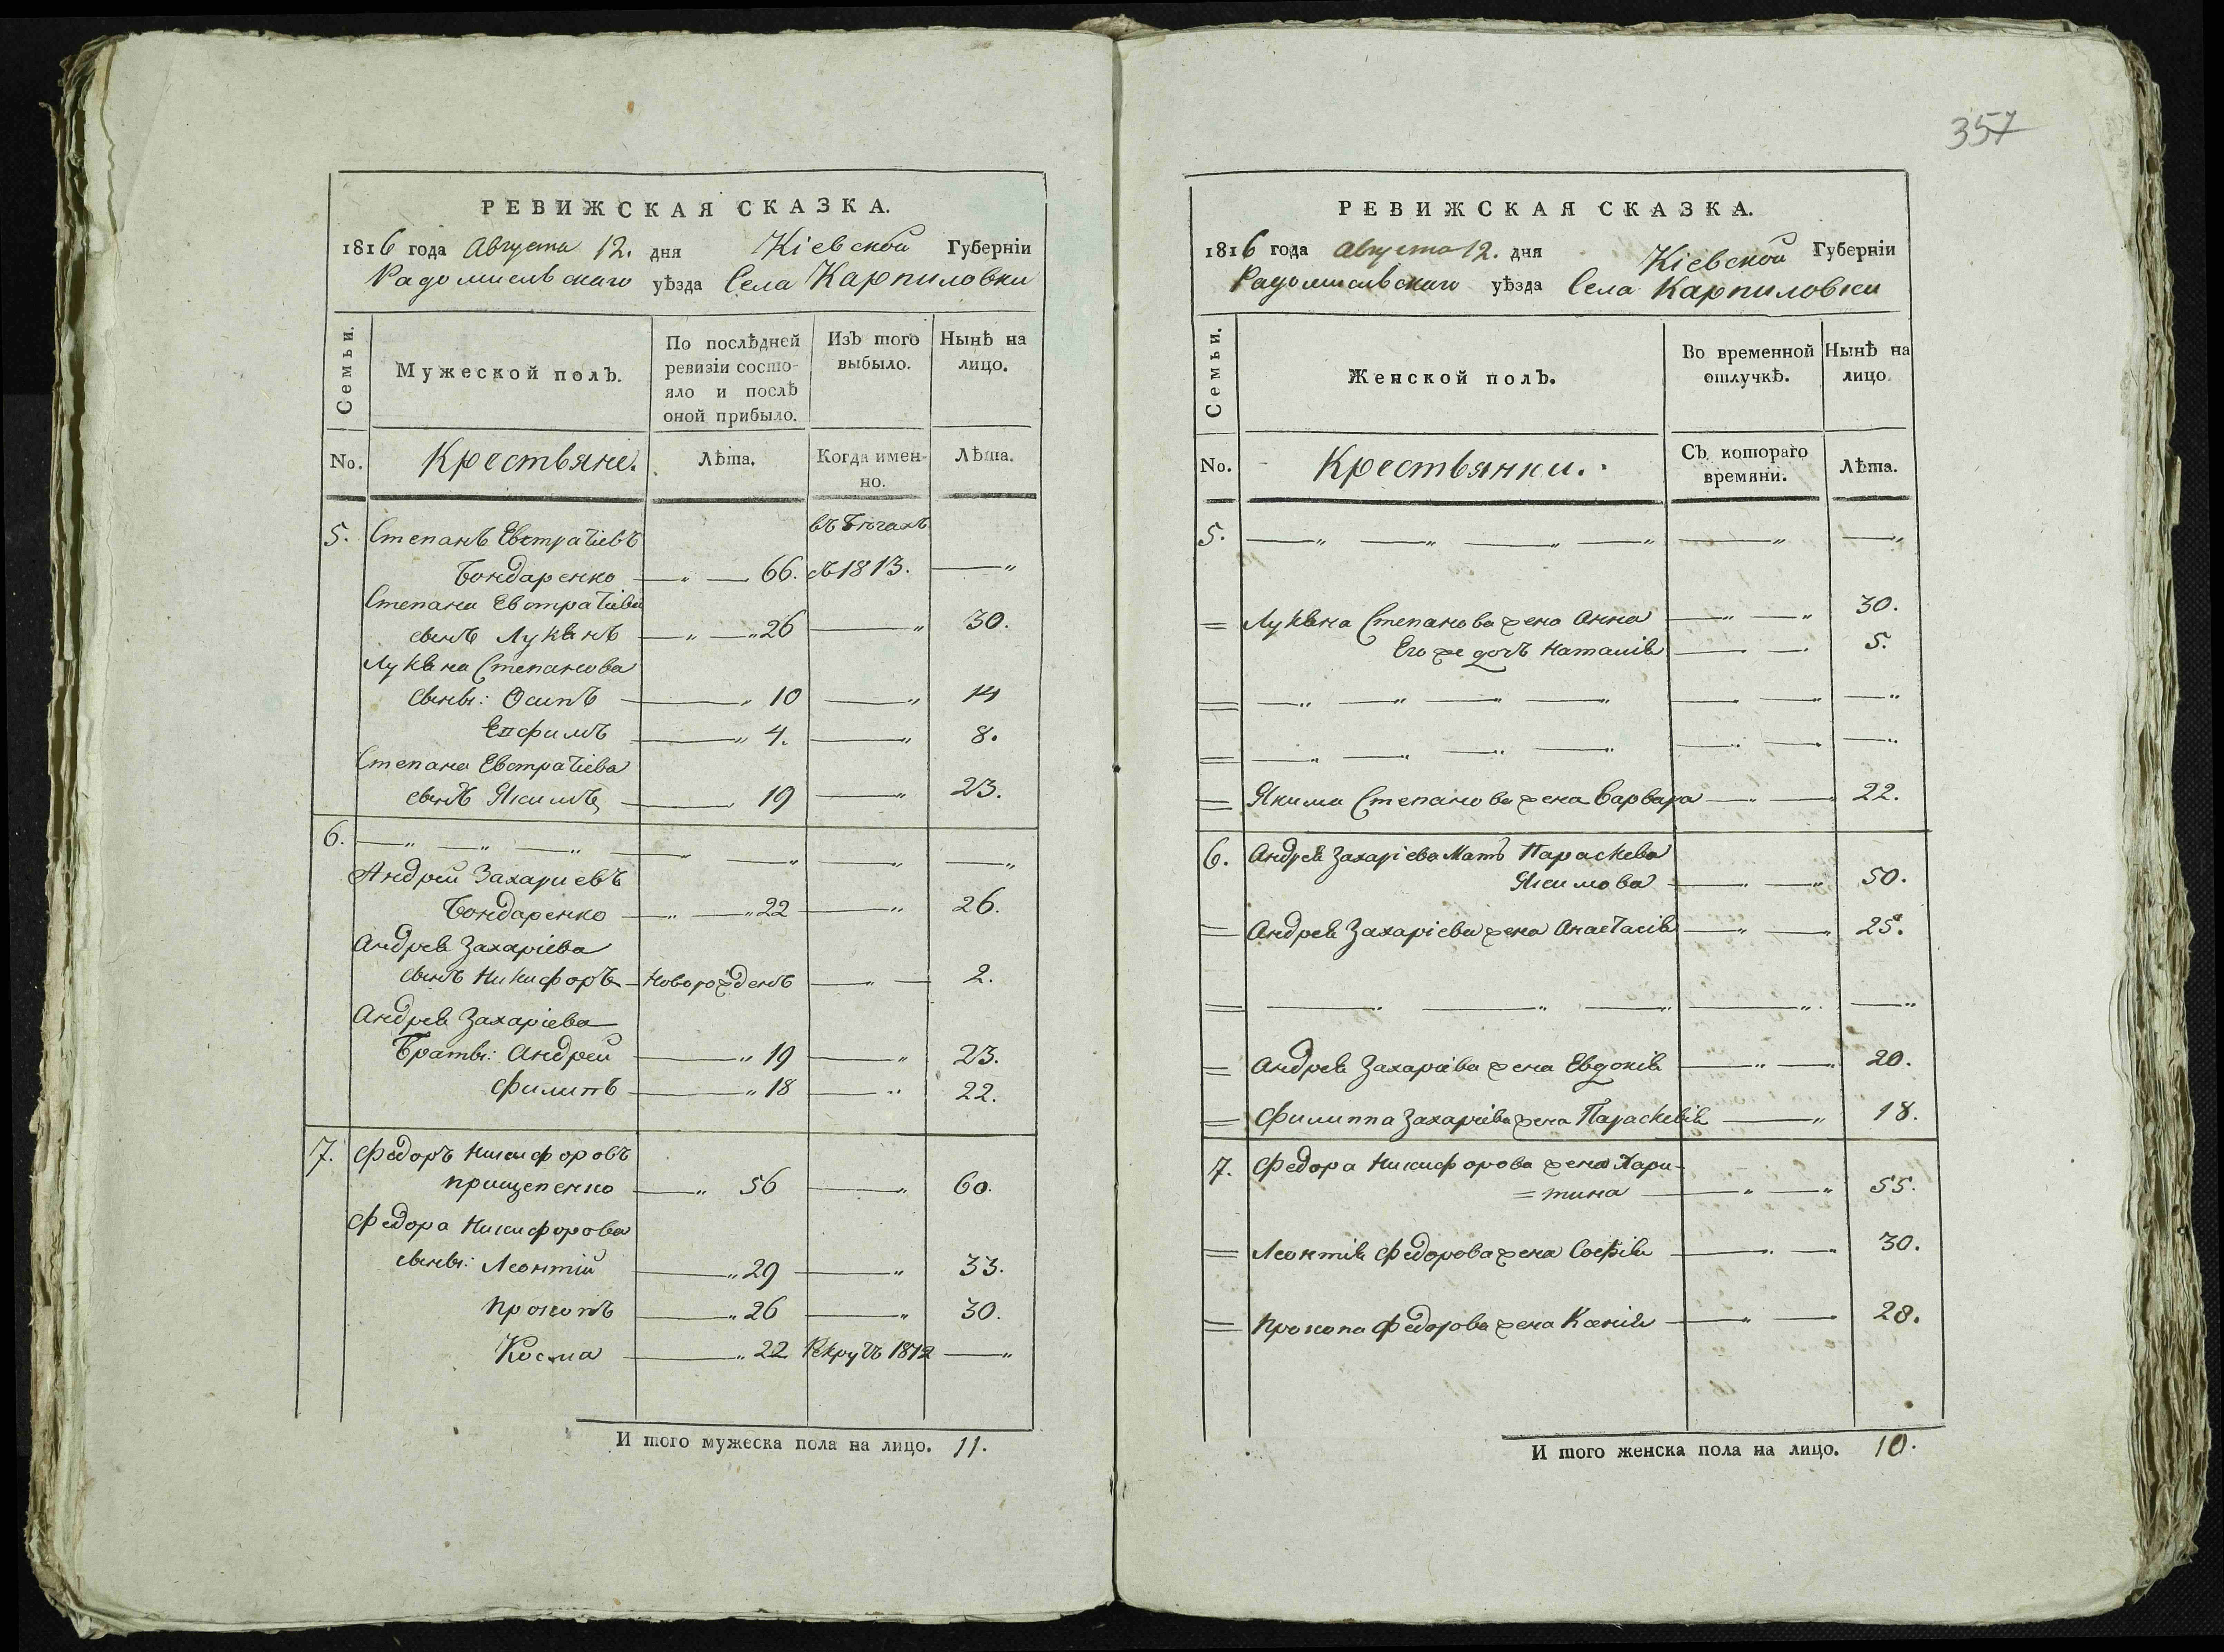 357
РЕВИЖСКАЯ СКАЗКА.
1816 года Августа 12. дня Кіевской Губерніи
Радомисльскаго уѣзда Села Карпиловки
Семьи.
Мужеской полъ.
По послѣдней ревизіи состо-
яло и послѣ
оной прибыло.
Изъ того выбыло.
Нынѣ на лицо.
No. Крестьяне. Лѣта. Когда имен-
но. Лѣта.
5. Степанъ Евстратіевъ въ бѣгахъ
Бондаренко — 66. съ 1813. —
Степана Евстратіева
сынъ Лукянъ — 26 — 30.
Лукяна Степанова
сыны: Осипъ — 10 — 14
Ефимъ — 4. — 8.
Степана Евстратіева
сынъ Якимъ — 19 — 23.
6. — — — — — — —
Андрей Захариевъ
Бондаренко — 22 — 26.
Андрея Захаріева
сынъ Никифоръ — Новорожденъ — 2.
Андрея Захаріева
Браты: Андрей — 19 — 23.
Филипъ — 18 — 22.
7. Федоръ Никифоровъ
Прищепенко — 56 — 60.
Федора Никифорова
сыны: Леонтій — 29 — 33.
Прокопъ — 26 — 30.
Косма — 22 Рекрутъ 1812 —
И того мужеска пола на лицо. 11.
РЕВИЖСКАЯ СКАЗКА.
1816 года Августа 12. дня Кіевской Губерніи
Радомисльскаго уѣзда Села Карпиловки
Семьи.
Женской полъ.
Во временной отлучкѣ.
Нынѣ на лицо.
No. Крестьянки. Съ котораго
времяни. Лѣта.
5. — — — — — —
= Лукяна Степанова жена Анна — — 30.
Его же дочь Наталія — — 5.
= — — — — — — —
= — — — — — — —
= Якима Степанова жена Варвара — — 22.
6. Андрея Захаріева Мать Параскева
Якимова — — 50.
= Андрея Захаріева жена Анастасія — — 25.
= — — — — —
= Андрея Захаріева жена Евдокія — — 20.
= Филиппа Захаріева жена Параскевія — 18.
7. Федора Никифорова жена Хари-
= тина — — 55.
= Леонтія Федорова жена Софія — — 30.
= Прокопа Федорова жена Ксенія — — 28.
И того женска пола на лицо. 10.